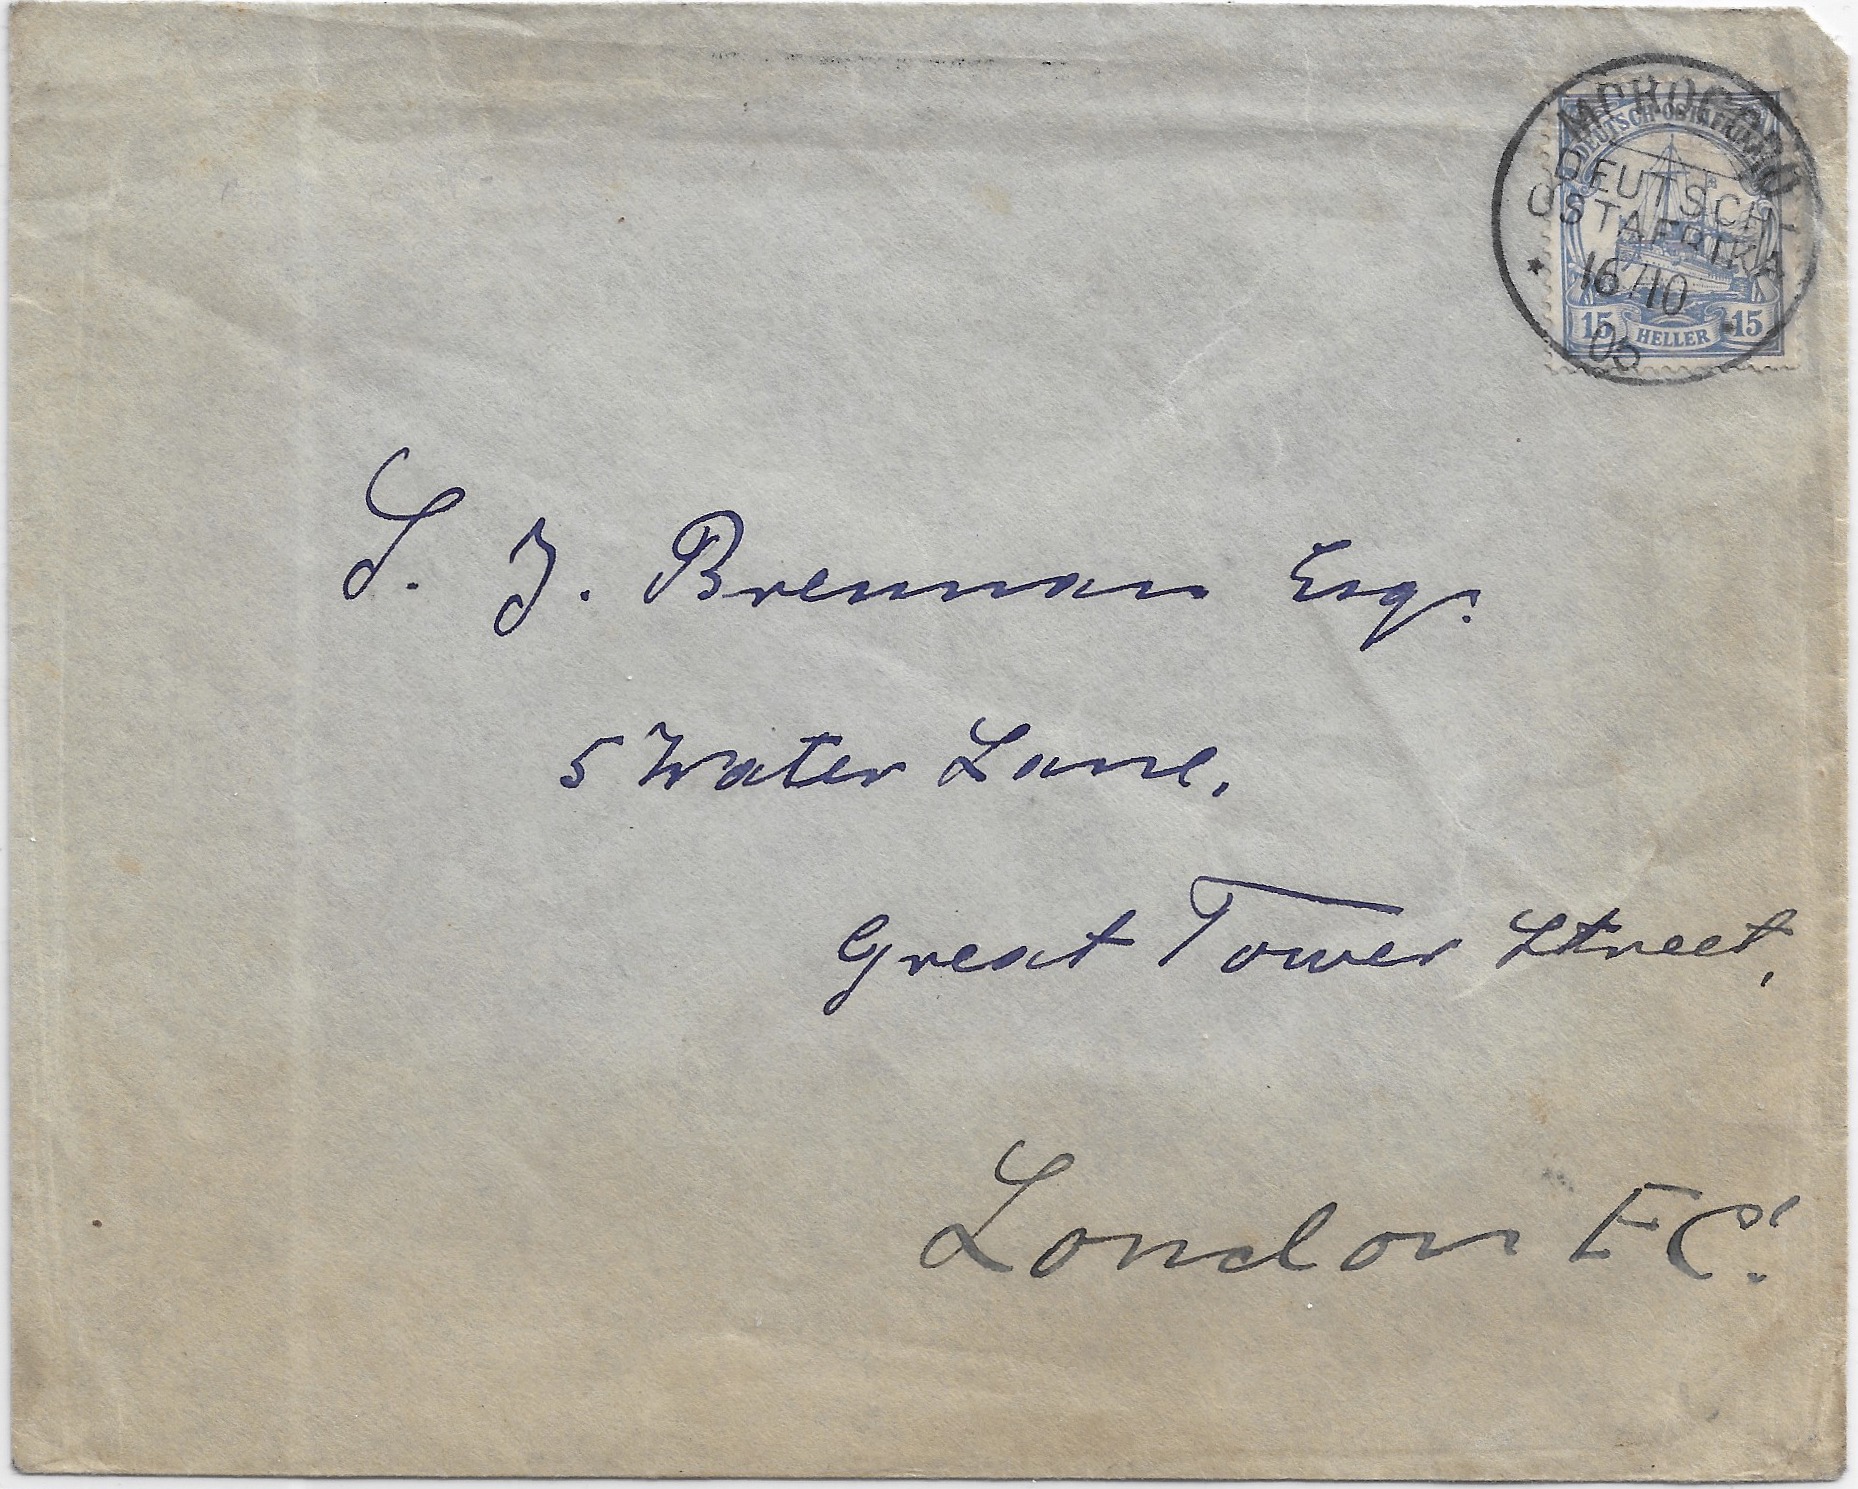 MOROGORO
DEUTSCH-OSTAFRIKA
DEUTSCH
OSTAFRIKA
* 16/10 *
05
15 HELLER 15
S. J. Brennan Esq.
5 Water Lane,
Great Tower Street,
London E C.